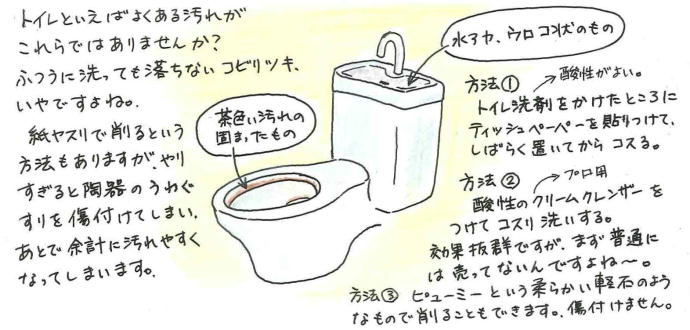 トイレといえばよくある汚れが
これらではありませんか?
ふつうに洗っても落ちないコビリツキ、
いやですよね。
紙ヤスリで削るという
方法もありますが、やり
すぎると陶器のうわぐ
すりを傷付けてしまい、
あとで余計に汚れやすく
なってしまいます。
茶色い汚れの
固まったもの
水アカ、ウロコ状のもの
方法① 酸性がよい。
トイレ洗剤をかけたところに
ティッシュペーペーを貼りつけて、
しばらく置いてからコスる。
方法② プロ用
酸性のクリームクレンザーを
つけてコスリ洗いする。
効果抜群ですが、まず普通に
は売ってないんですよね〜。
方法③ ピューミーという柔らかい軽石のよう
なもので削ることもできます。傷付けません。